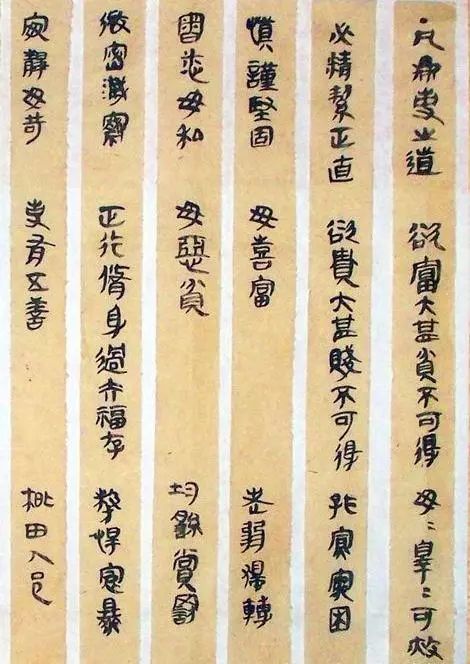 凡為吏之道 欲富大甚貧不可得 毋=辠=可赦
必精絜正直 欲貴大甚賤不可得 孤寡窮困
慎謹堅固 毋喜富 老弱獨轉
審悉毋私 毋惡貧 均繇賞罰
微密韱察 正行脩身過去福存 悍暴
安靜毋苛 吏有五善 田人邑